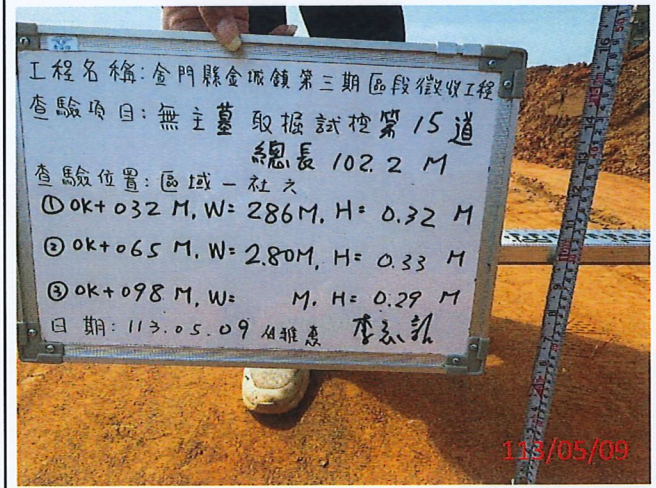 工程名稱:金門縣金城鎮第三期區段徵收工程
查驗項目:無主墓 取掘試挖第15道
總長 102.2 M
查驗位置:區域一社之
① 0K+032 M, W= 286M, H= 0.32 M
② 0K+065 M, W= 2.80M, H= 0.33 M
③ 0K+098 M, W= M. H= 0.29 M
日期:113.05.09
113/05/09